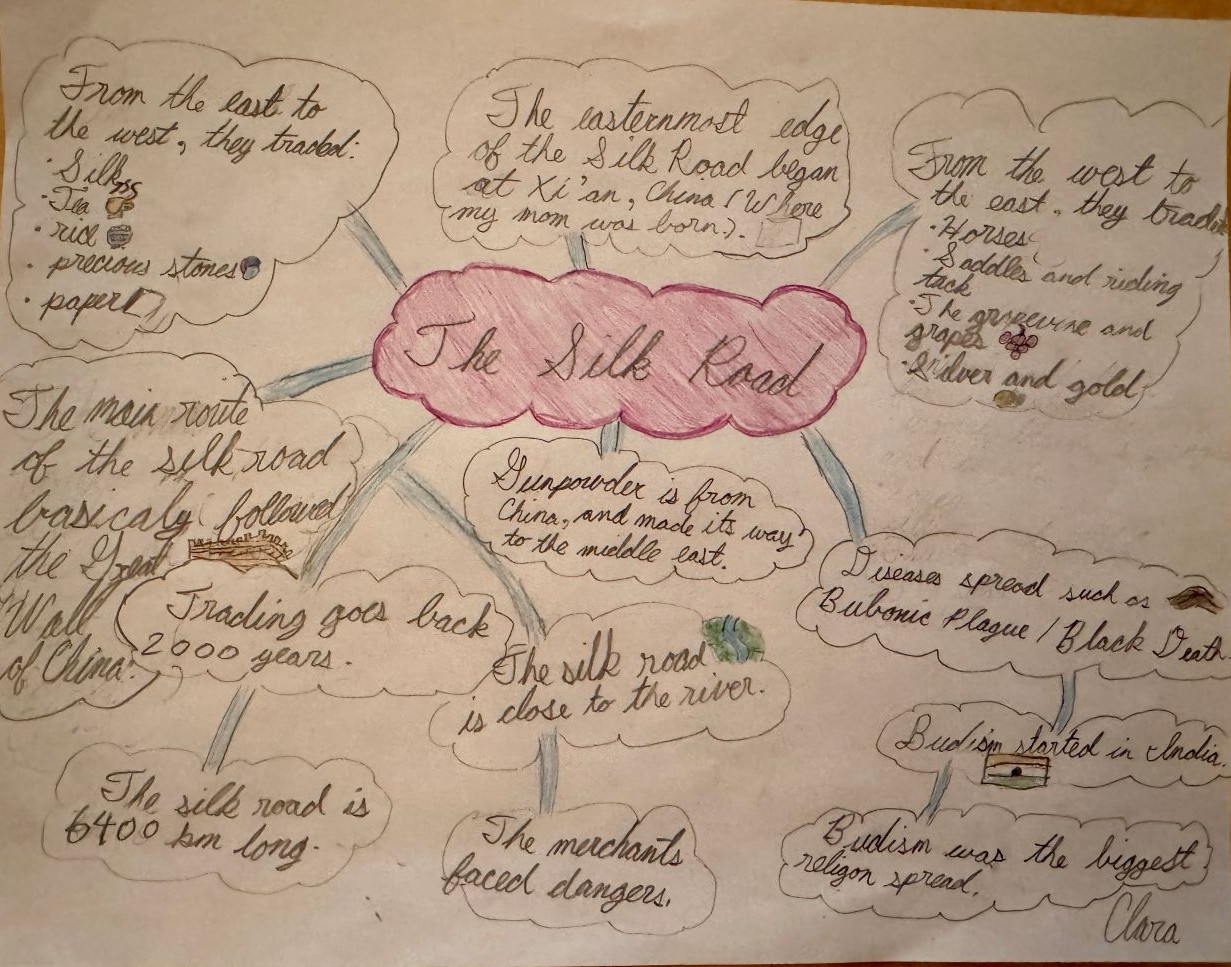 From the east to
the west, they traded:
· Silk
· Tea
· rice
· precious stones
· paper
The easternmost edge
of the Silk Road began
at Xi'an, China (Where
my mom was born.).
From the west to
the east, they
· Horses
· Saddles and riding
tack
· The grapevine and
grapes
· Silver and gold
The Silk Road
The main route
of the silk road
basicaly followed
the Great
Wall
of China.
Gunpowder is from
China, and made its way
to the middle east.
Diseases spread such as
Bubonic Plague / Black Death
Trading goes back
2000 years.
The silk road
is close to the river.
Budism started in India.
The silk road is
6400 km long.
The merchants
faced dangers.
Budism was the biggest
religon spread.
Clara